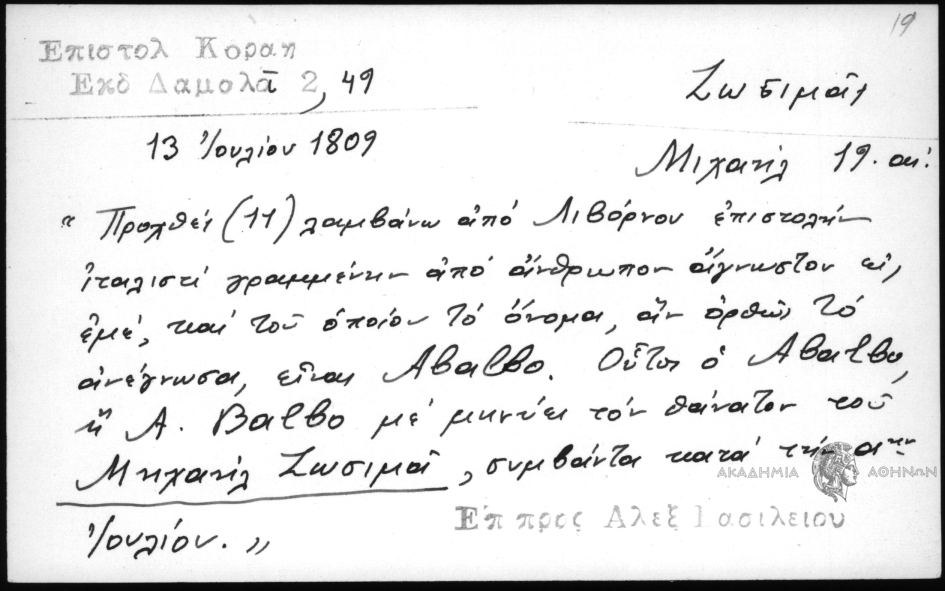 19
Επιστολ Κοραη
Εκδ Δαμαλᾶ 2, 49
Ζωσιμᾶς
13 Ἰουλίου 1809
Μιχαήλ 19. αἰ.
" Προχθές (11) λαμβάνω ἀπό Λιβόρνου ἐπιστολήν
ἰταλιστί γραμμένην ἀπό ἄνθρωπον ἄγνωστον εἰς
ἐμέ, καί τοῦ ὁποίου τό ὄνομα, ἄν ὀρθῶς τό
ἀνέγνωσα, εἶναι Abalbo. Οὗτος ὁ Abalbo,
ἤ A. Balbo μέ μηνύει τόν θάνατον τοῦ
Μιχαήλ Ζωσιμᾶ, συμβάντα κατά τήν
ΑΚΑΔΗΜΙΑ ΑΘΗΝΩΝ
Επ προς Αλεξ Βασιλειου
Ἰουλίου. "